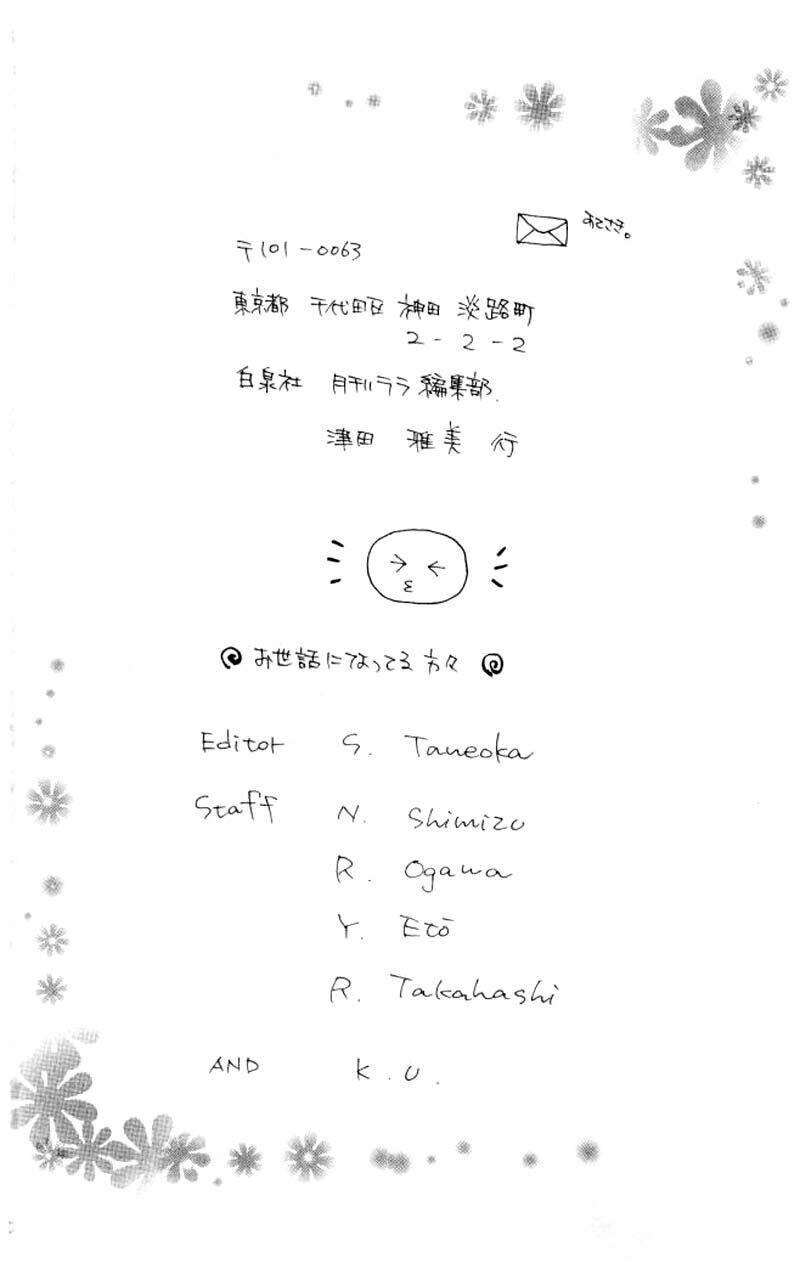 あてさき。
〒101-0063
東京都 千代田区 神田 淡路町
2-2-2
白泉社 月刊ララ編集部
津田 雅美 行
お世話になってる方々
Editor S. Taneoka
Staff N. Shimizu
R. Ogawa
Y. Etō
R. Takahashi
AND K.U.